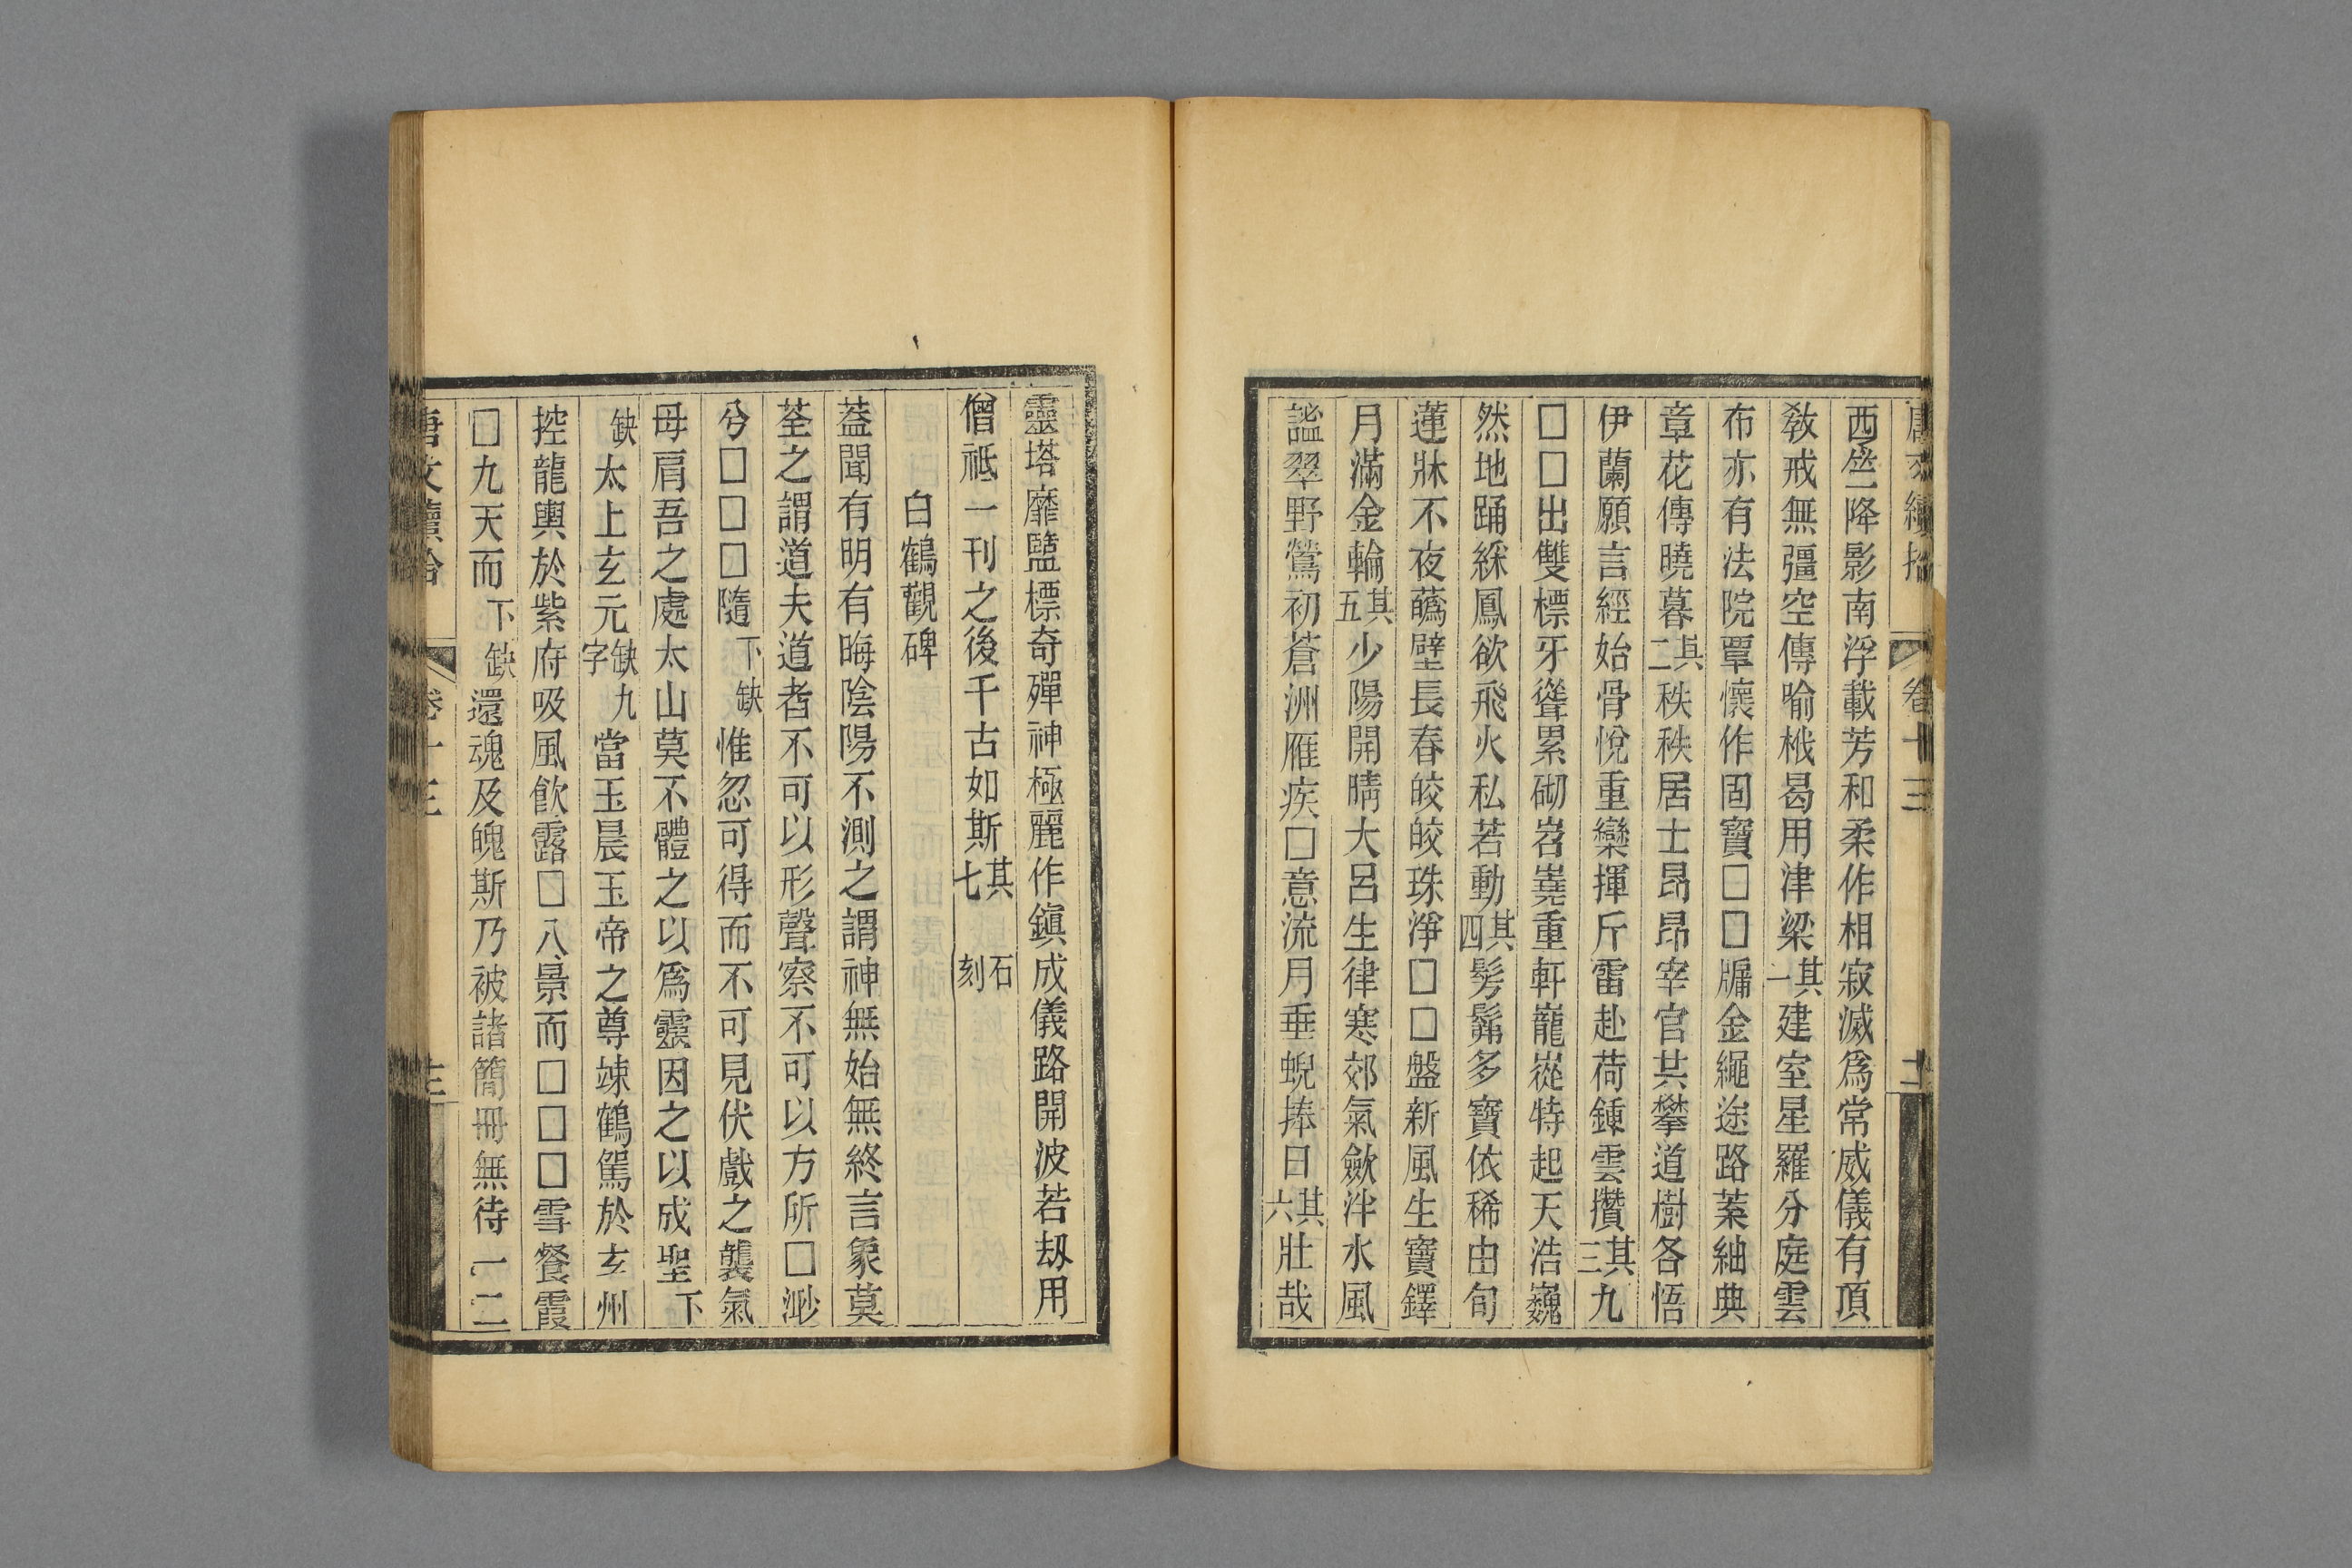 唐文續拾 卷十三 十二
西竺降影南浮載芳和柔作相寂滅爲常威儀有頂
敎戒無彊空傳喻栰曷用津梁其一建室星羅分庭雲
布亦有法院覃懷作固寶□□牖金繩途路蓁紬典
章花傳曉暮其二秩秩居士昂昂宰官共攀道樹各悟
伊蘭願言經始骨悅重欒揮斤雷赴荷鍾雲攢其三九
□□出雙標牙聳累砌岧嶤重軒巃嵸特起天浩巍
然地踊綵鳳欲飛火私若動其四髣髴多寶依稀由旬
蓮牀不夜蘤壁長春皎皎珠淨□□盤新風生寶鐸
月滿金輪其五少陽開晴大呂生律寒郊氣歛泮水風
謐翠野鶯初蒼洲雁疾□意流月垂蜺捧日其六壯哉
靈塔靡盬標奇殫神極麗作鎭成儀路開波若刼用
僧祗一刊之後千古如斯其七 石刻
白鶴觀碑
葢聞有明有晦陰陽不測之謂神無始無終言象莫
荃之謂道夫道者不可以形聲察不可以方所□渺
兮□□□隨下缺惟忽可得而不可見伏戲之襲氣
母肩吾之處太山莫不體之以爲靈因之以成聖下
缺太上玄元缺九字當玉晨玉帝之尊竦鶴駕於玄州
控龍輿於紫府吸風飮露□八景而□□□雪餐霞
□九天而下缺還魂及魄斯乃被諸簡冊無待一二
唐文續拾 卷十三 十三